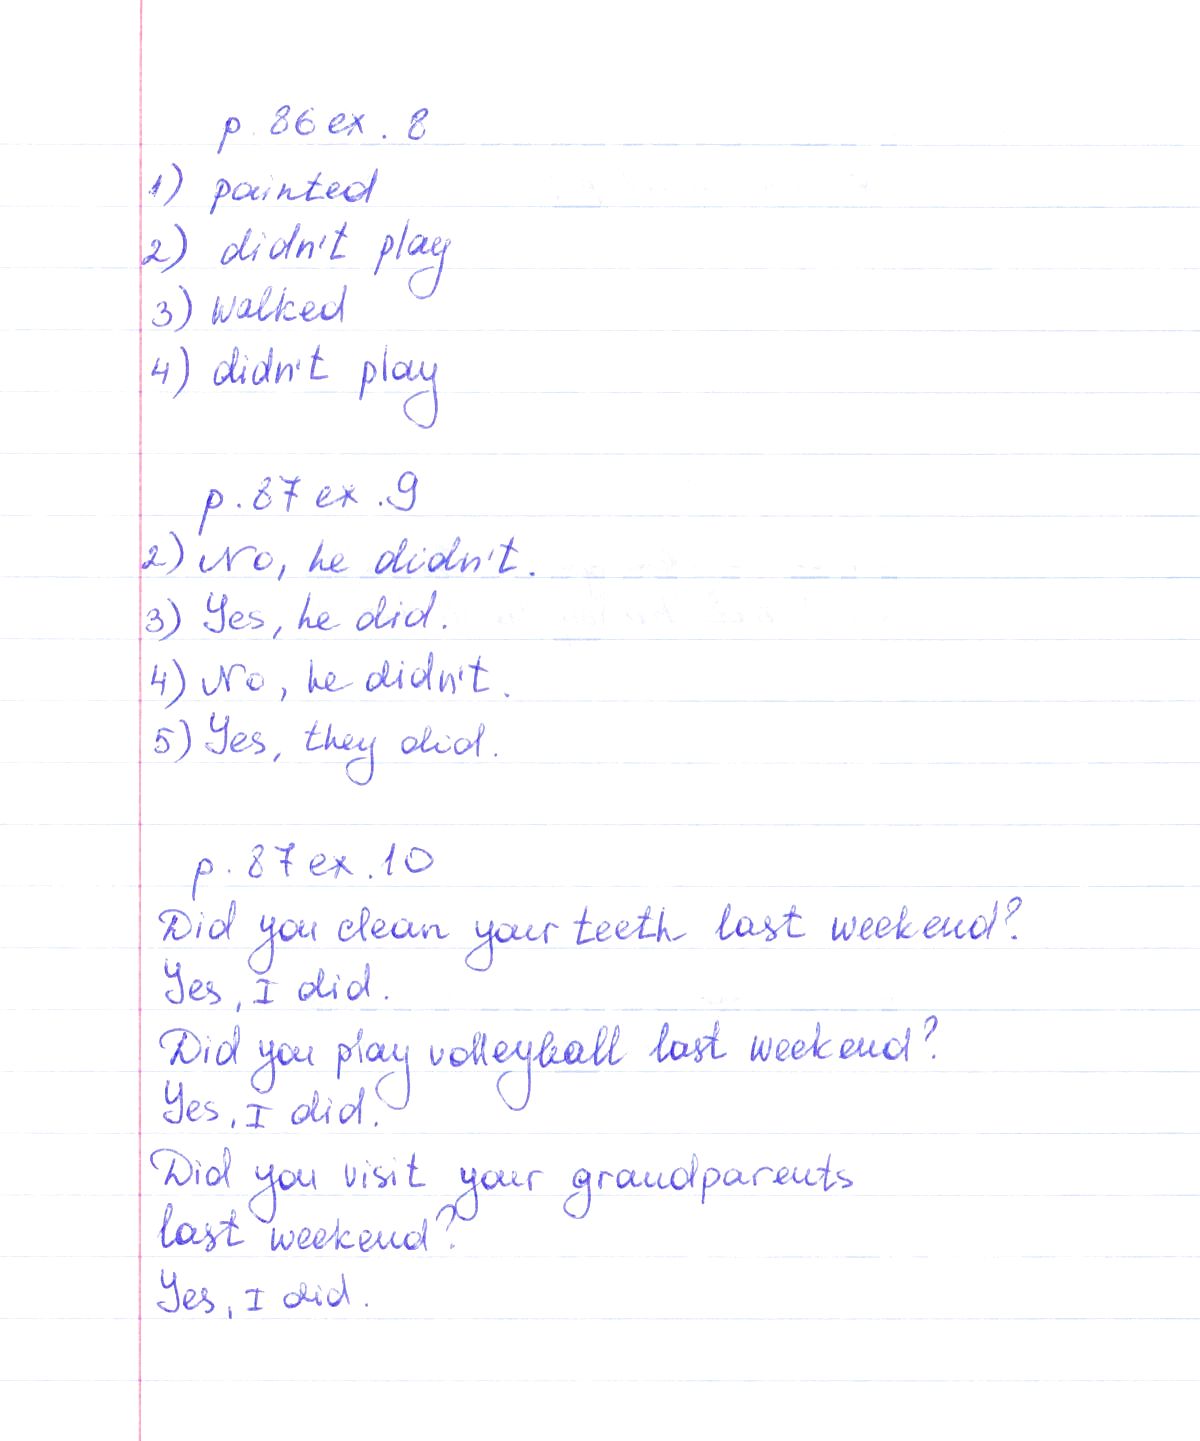 p. 86 ex. 8
1) painted
2) didn't play
3) walked
4) didn't play
p. 87 ex. 9
2) No, he didn't.
3) Yes, he did.
4) No, he didn't.
5) Yes, they did.
p. 87 ex. 10
Did you clean your teeth last weekend?
Yes, I did.
Did you play volleyball last weekend?
Yes, I did.
Did you visit your grandparents
last weekend?
Yes, I did.